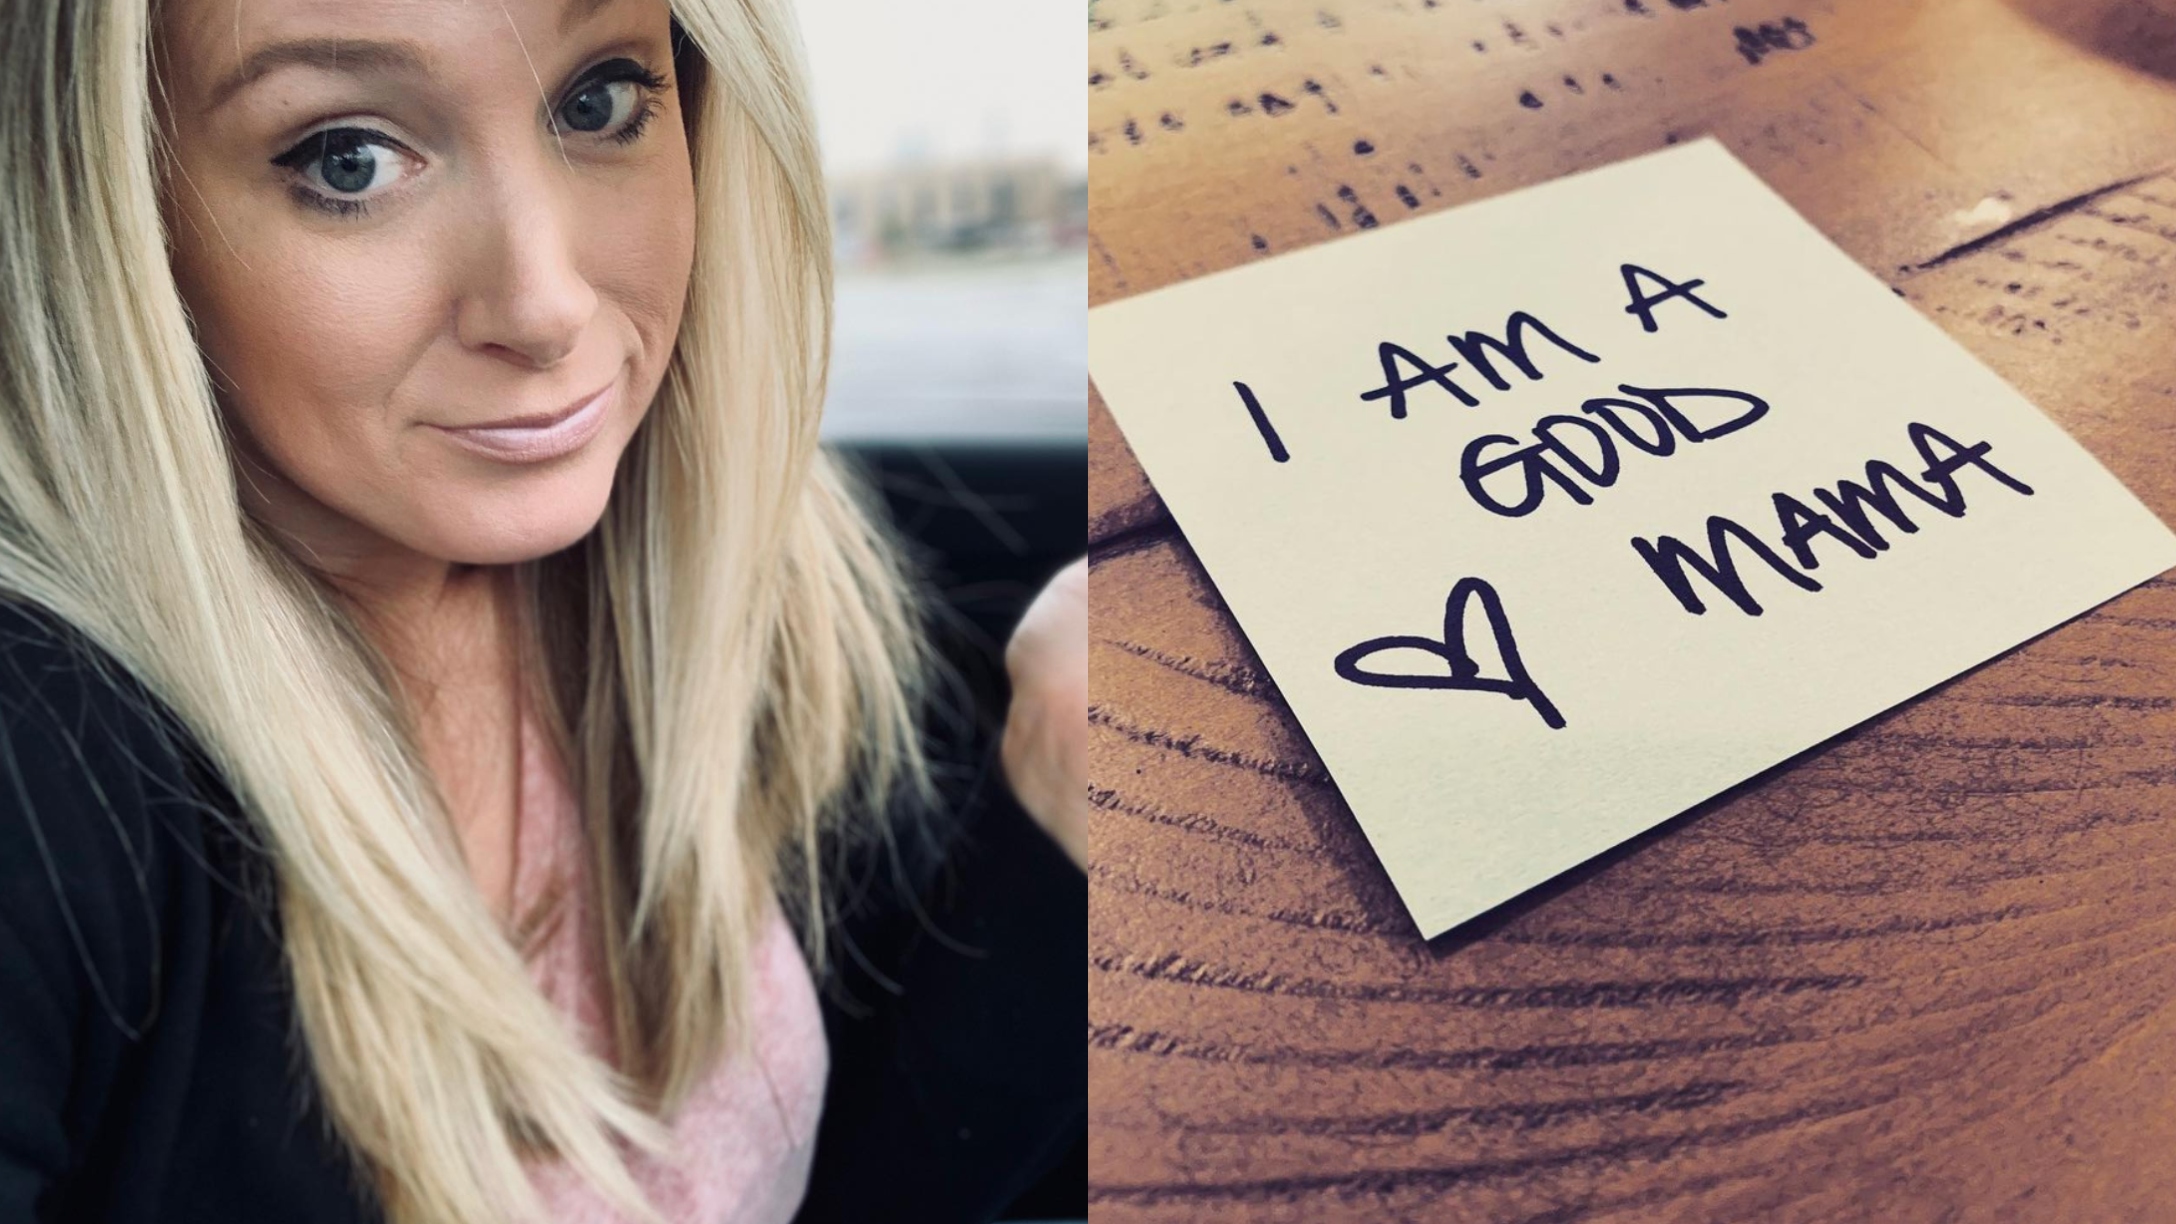 I AM A
GOOD
MAMA